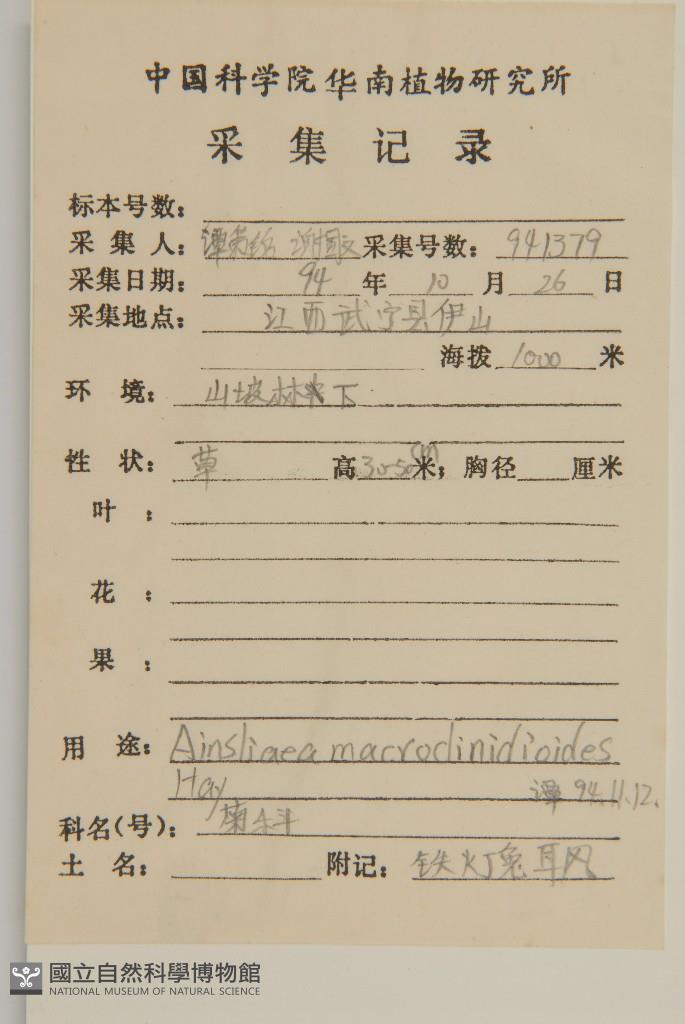 中国科学院华南植物研究所
采集记录
标本号数：
采集人：谭策铭 谢国文 采集号数：941379
采集日期：94年10月26日
采集地点：江西武宁县伊山
海拨1000米
环境：山坡林下
性状：草 高30-50cm米；胸径 厘米
叶：
花：
果：
用途：Ainsliaea macroclinidioides
Hay 谭 94.11.12.
科名(号)：菊科
土名： 附记：铁灯兔耳风
國立自然科學博物館
NATIONAL MUSEUM OF NATURAL SCIENCE